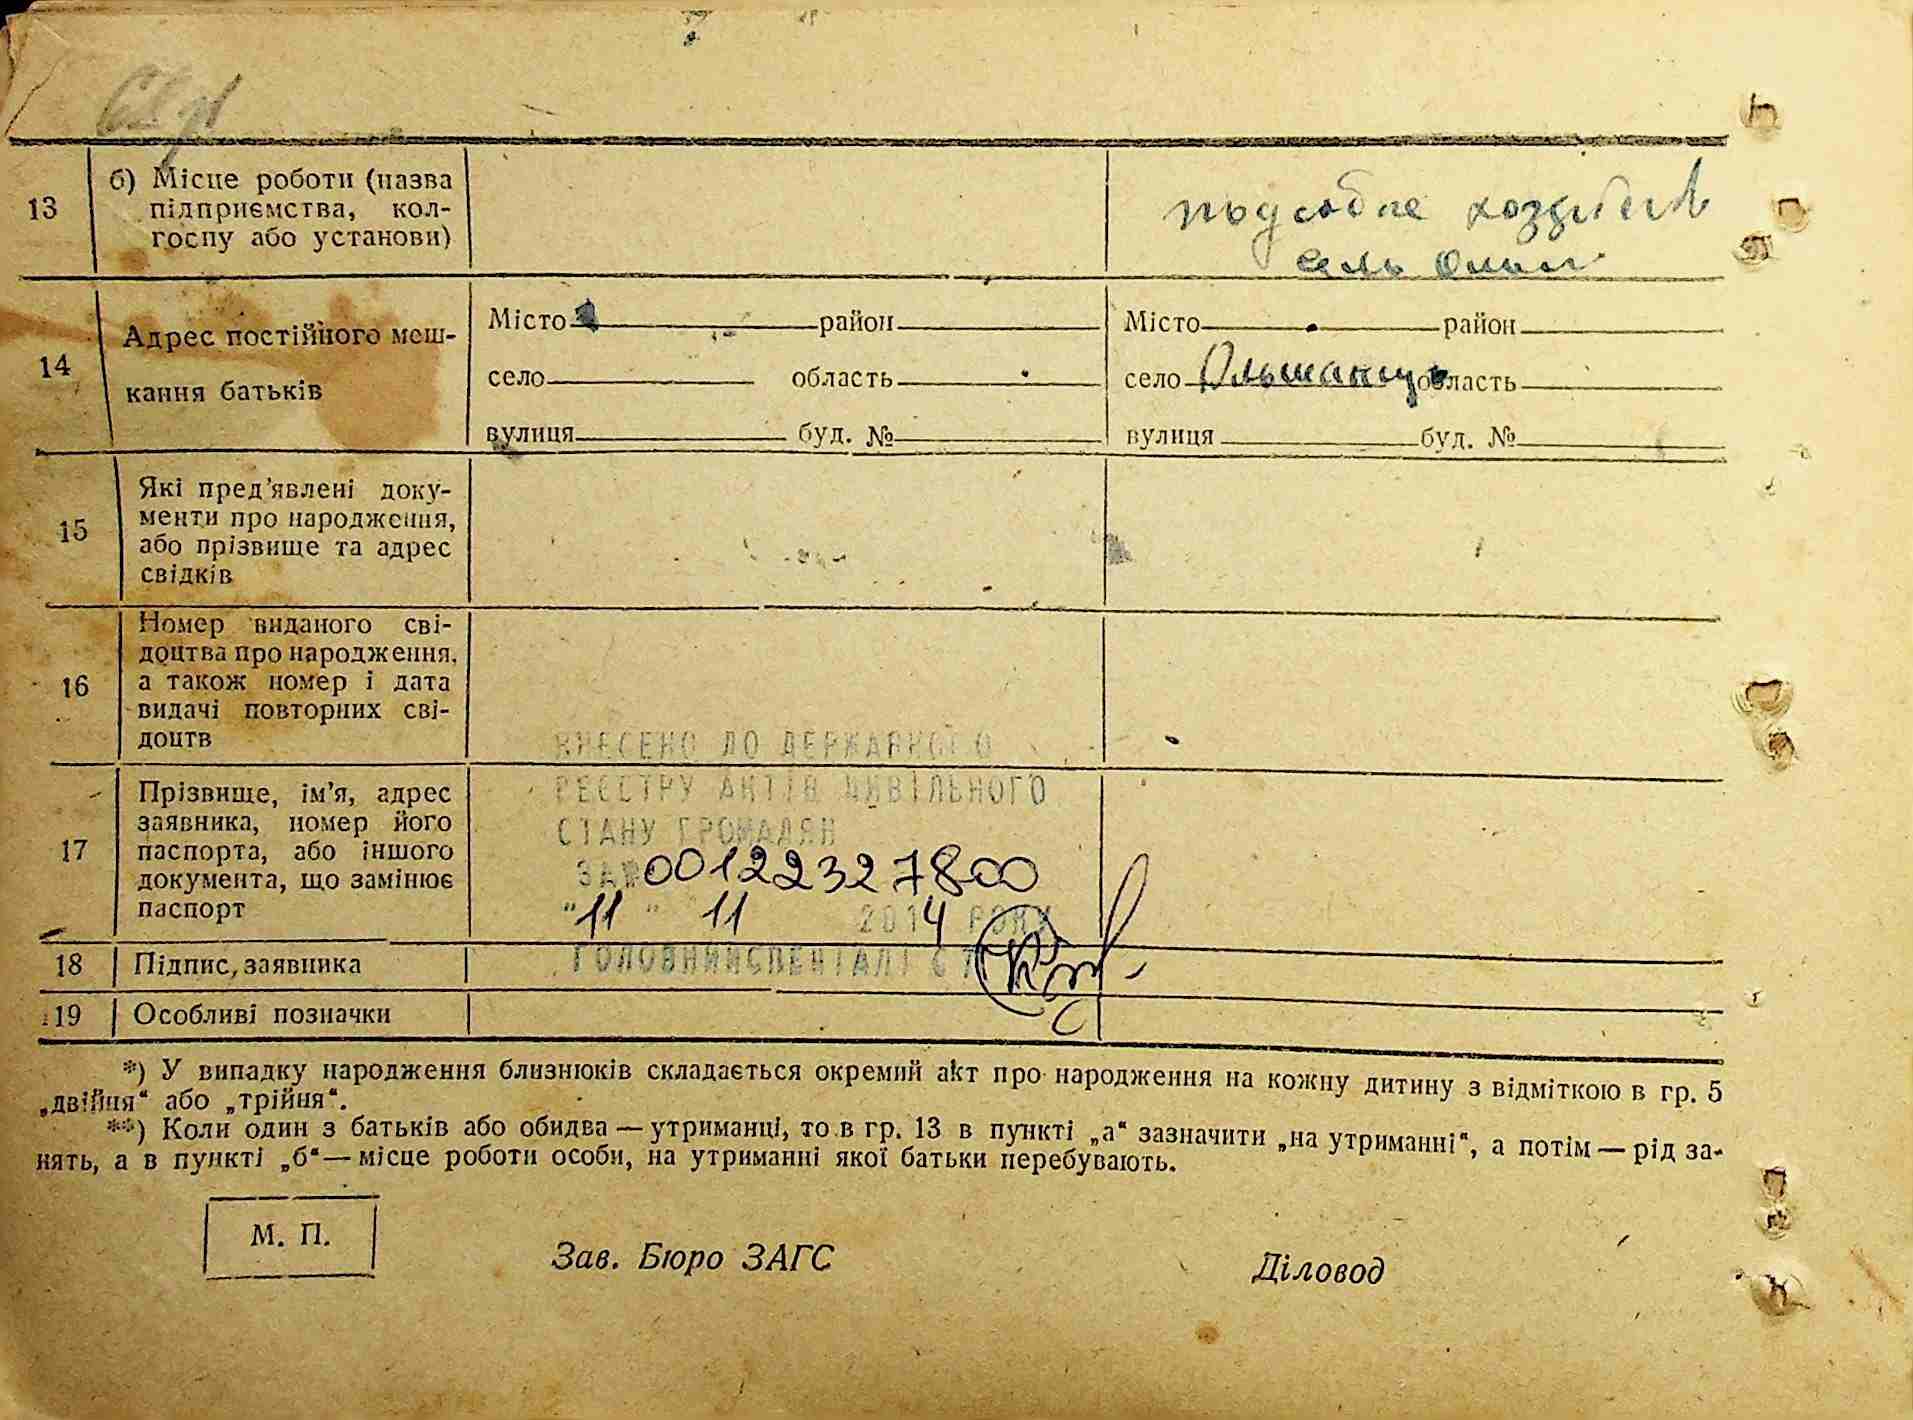 13
б) Місце роботи (назва
підприємства, кол-
госпу або установи)
подсобне
14
Адрес постійного меш-
кання батьків
Місто район
село область
вулиця буд. №
Місто район
село Ольшаниця область
вулиця буд. №
15
Які пред'явлені доку-
менти про народження,
або прізвище та адрес
свідків
16
Номер виданого сві-
доцтва про народження,
а також номер і дата
видачі повторних сві-
доцтв
17
Прізвище, ім'я, адрес
заявника, номер його
паспорта, або іншого
документа, що замінює
паспорт
ВНЕСЕНО ДО ДЕРЖАВНОГО
РЕЄСТРУ АКТІВ ЦИВІЛЬНОГО
СТАНУ ГРОМАДЯН
ЗА № 00122327800
"11" 11 2014 РОКУ
ГОЛОВНИЙ СПЕЦІАЛІСТ
18 Підпис заявника
19 Особливі позначки
*) У випадку народження близнюків складається окремий акт про народження на кожну дитину з відміткою в гр. 5
„двійня“ або „трійня“.
**) Коли один з батьків або обидва — утриманці, то в гр. 13 в пункті „а“ зазначити „на утриманні“, а потім — рід за-
нять, а в пункті „б“ — місце роботи особи, на утриманні якої батьки перебувають.
М. П.
Зав. Бюро ЗАГС
Діловод